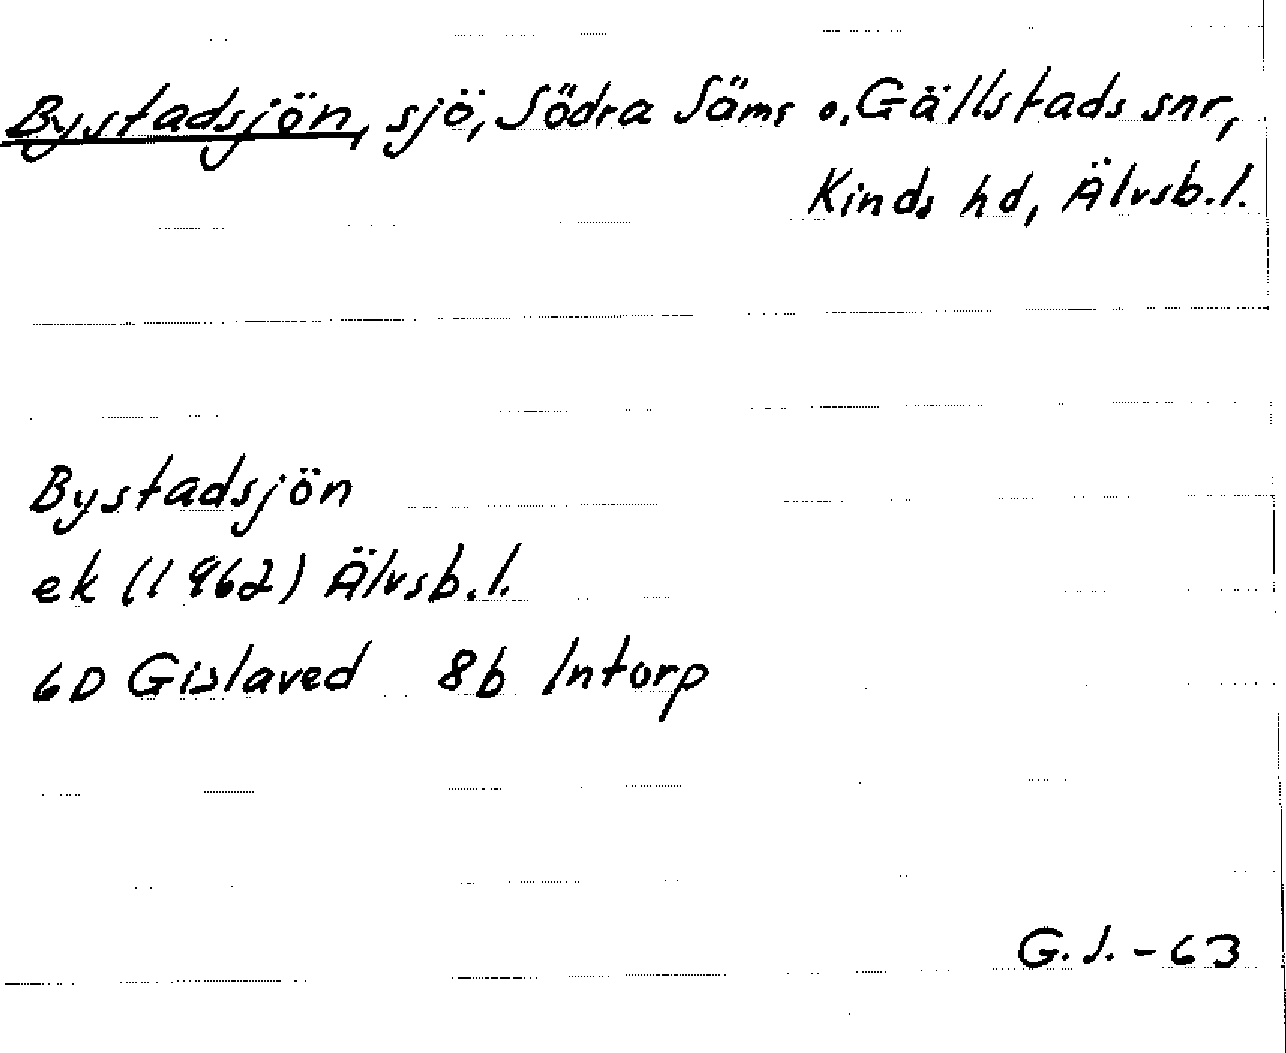 Bystadsjön, sjö, Södra Säms o. Gällstads snr,
Kinds hd, Älvsb.l.
Bystadsjön
ek (1962) Älvsb.l.
6D Gislaved 8b Intorp
G.J.-63